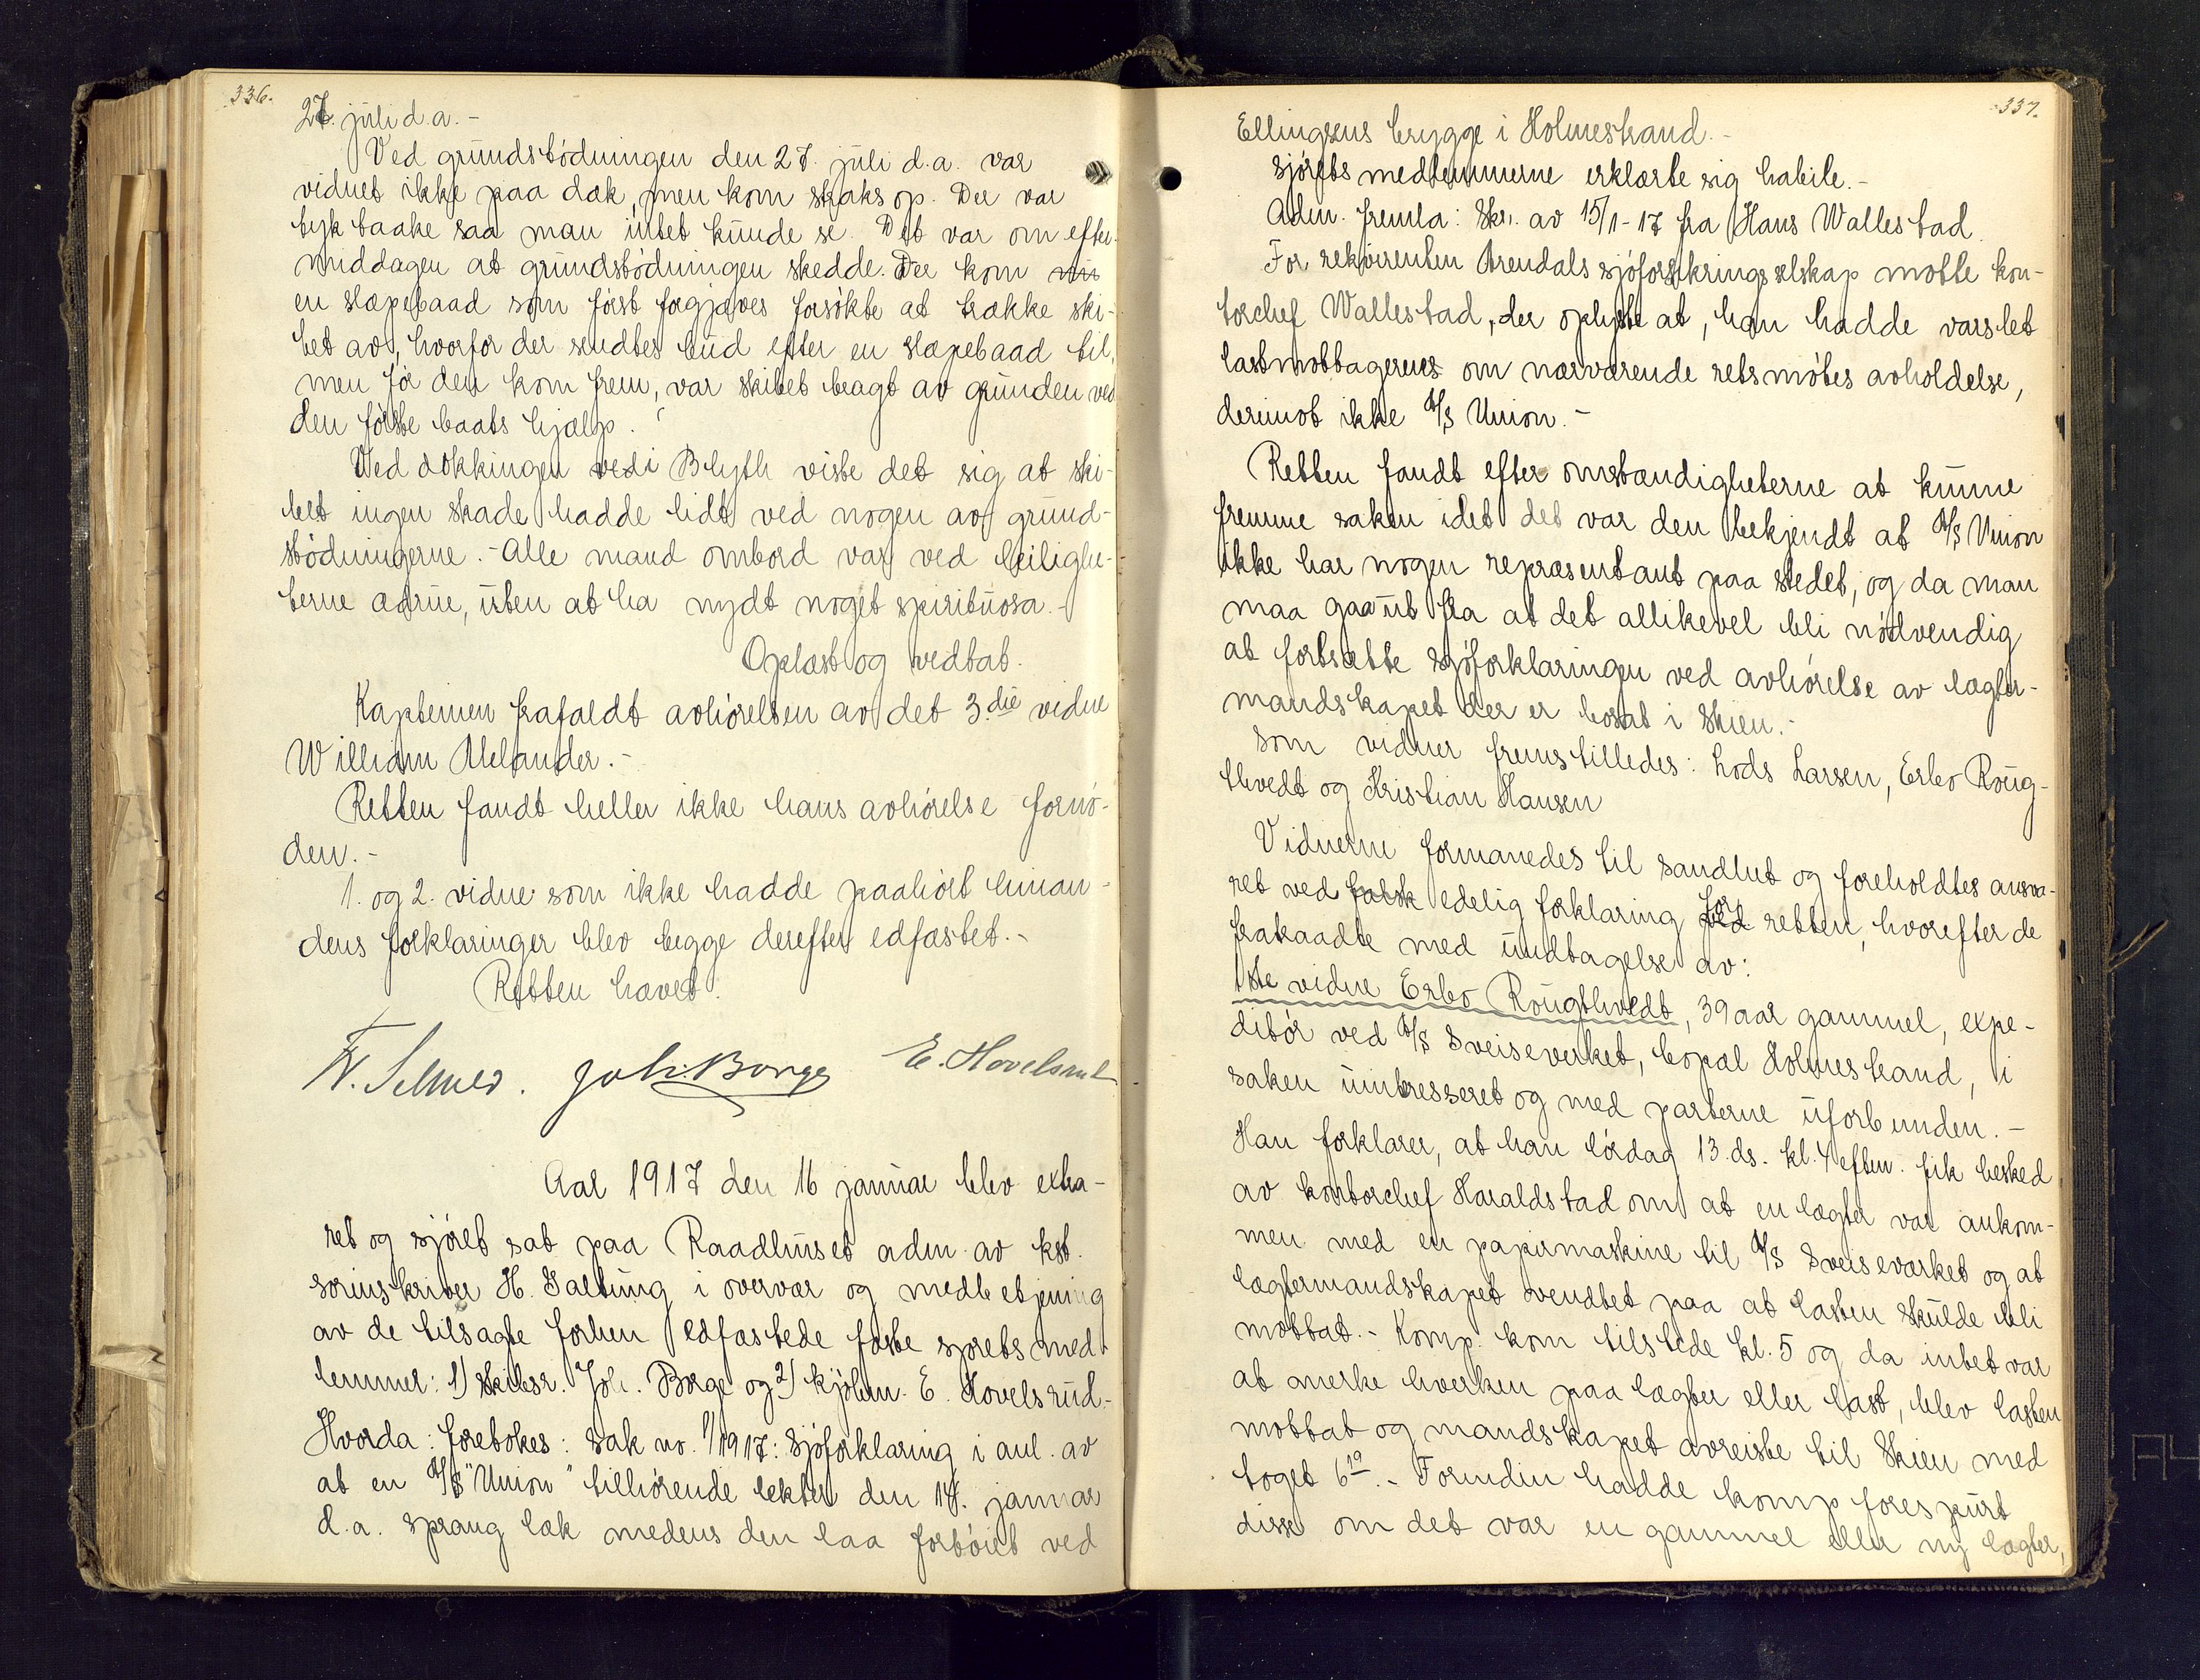 336.
27. juli d.a. -
Ved grundstödningen den 27. juli d.a. var
vidnet ikke paa dæk, men kom straks op. Der var
tyk taake saa man intet kunde se. Det var om efter-
middagen at grundstödningen skedde. Der kom
en slæpebaad som först forgjæves forsökte at trække ski-
bet av, hvorfor der sendtes bud efter en slæpebaad til,
men för den kom frem, var skibet bragt av grunden ved
den förste baats hjælp.
Ved dokkingen i Blyth viste det sig at ski-
bet ingen skade hadde lidt ved nogen av grund-
stödningerne. - Alle mand ombord var ved leilighe-
terne ædrue, uten at ha nydt noget spirituosa. -
Oplæst og vedtat.
Kapteinen frafaldt avhörelsen av det 3.die vidne
William Melander. -
Retten fandt heller ikke hans avhörelse fornö-
den. -
1. og 2. vidne som ikke hadde paahört hinan-
dens forklaringer blev begge derefter edfæstet. -
Retten hævet.
Fr. Selmer. Joh. Borge E. Hovelsrud
Aar 1917 den 16 januar blev extra-
ret og sjöret sat paa Raadhuset adm. av kst.
sorenskriver H. Saltung i overvær og medbetjening
av de tilsagte forhen edfæstede faste sjöretsmed-
lemmer: 1) Skibsr. Joh. Borge og 2) kjöbm. E. Hovelsrud. -
Hvorda: foretokes: Sak no. 1/1917: Sjöforklaring i anl. av
at en A/S "Union" tilhörende lekter den 14. januar
d.a. sprang læk medens den laa fortöiet ved
337.
Ellingsens brygge i Holmestrand. -
Sjöretsmedlemmerne erklærte sig habile. -
Adm. fremla: Skr. av 15/1-17 fra Hans Wallestad.
For rekvirenten Arendals sjöforsikringsselskap mötte kon-
torchef Wallestad, der oplyste at, han hadde varslet
lastmottagernes om nærværende retsmötes avholdelse,
derimot ikke A/S Union. -
Retten fandt efter omstændigheterne at kunne
fremme saken idet det var den bekjendt at A/S Union
ikke har nogen repræsentant paa stedet, og da man
maa gaa ut fra at det allikevel bli nödvendig
at fortsætte sjöforklaringen ved avhörelse av lægter-
mandskapet der er bosat i Skien. -
Som vidner fremstilledes: Lods Larsen, Erbo Roug-
thvedt og Kristian Hansen
Vidnerne formanedes til sandhet og foreholdtes ansva-
ret ved falsk edelig forklaring for retten, hvorefter de
frakaadte med undtagelse av:
1ste vidne Erbo Rougthvedt, 39 aar gammel, expe-
ditör ved A/S Sveiseverket, bopæl Holmestrand, i
saken uintresseret og med parterne uforbunden. -
Han forklarer, at han lördag 13. ds. kl. 4 efterm. fik besked
av kontorchef Haraldstad om at en lægter var ankom-
men med en papirmaskine til A/S Sveiseværket og at
lægtermandskapet ventet paa at lasten skulde bli
mottat. - Komp. kom tilstede kl. 5 og da intet var
at merke hverken paa lægter eller last, blev lasten
mottat og mandskapet avreiste til Skien med
toget 6 19. - Forinden hadde komp forespurt
disse om det var en gammel eller ny lægter,